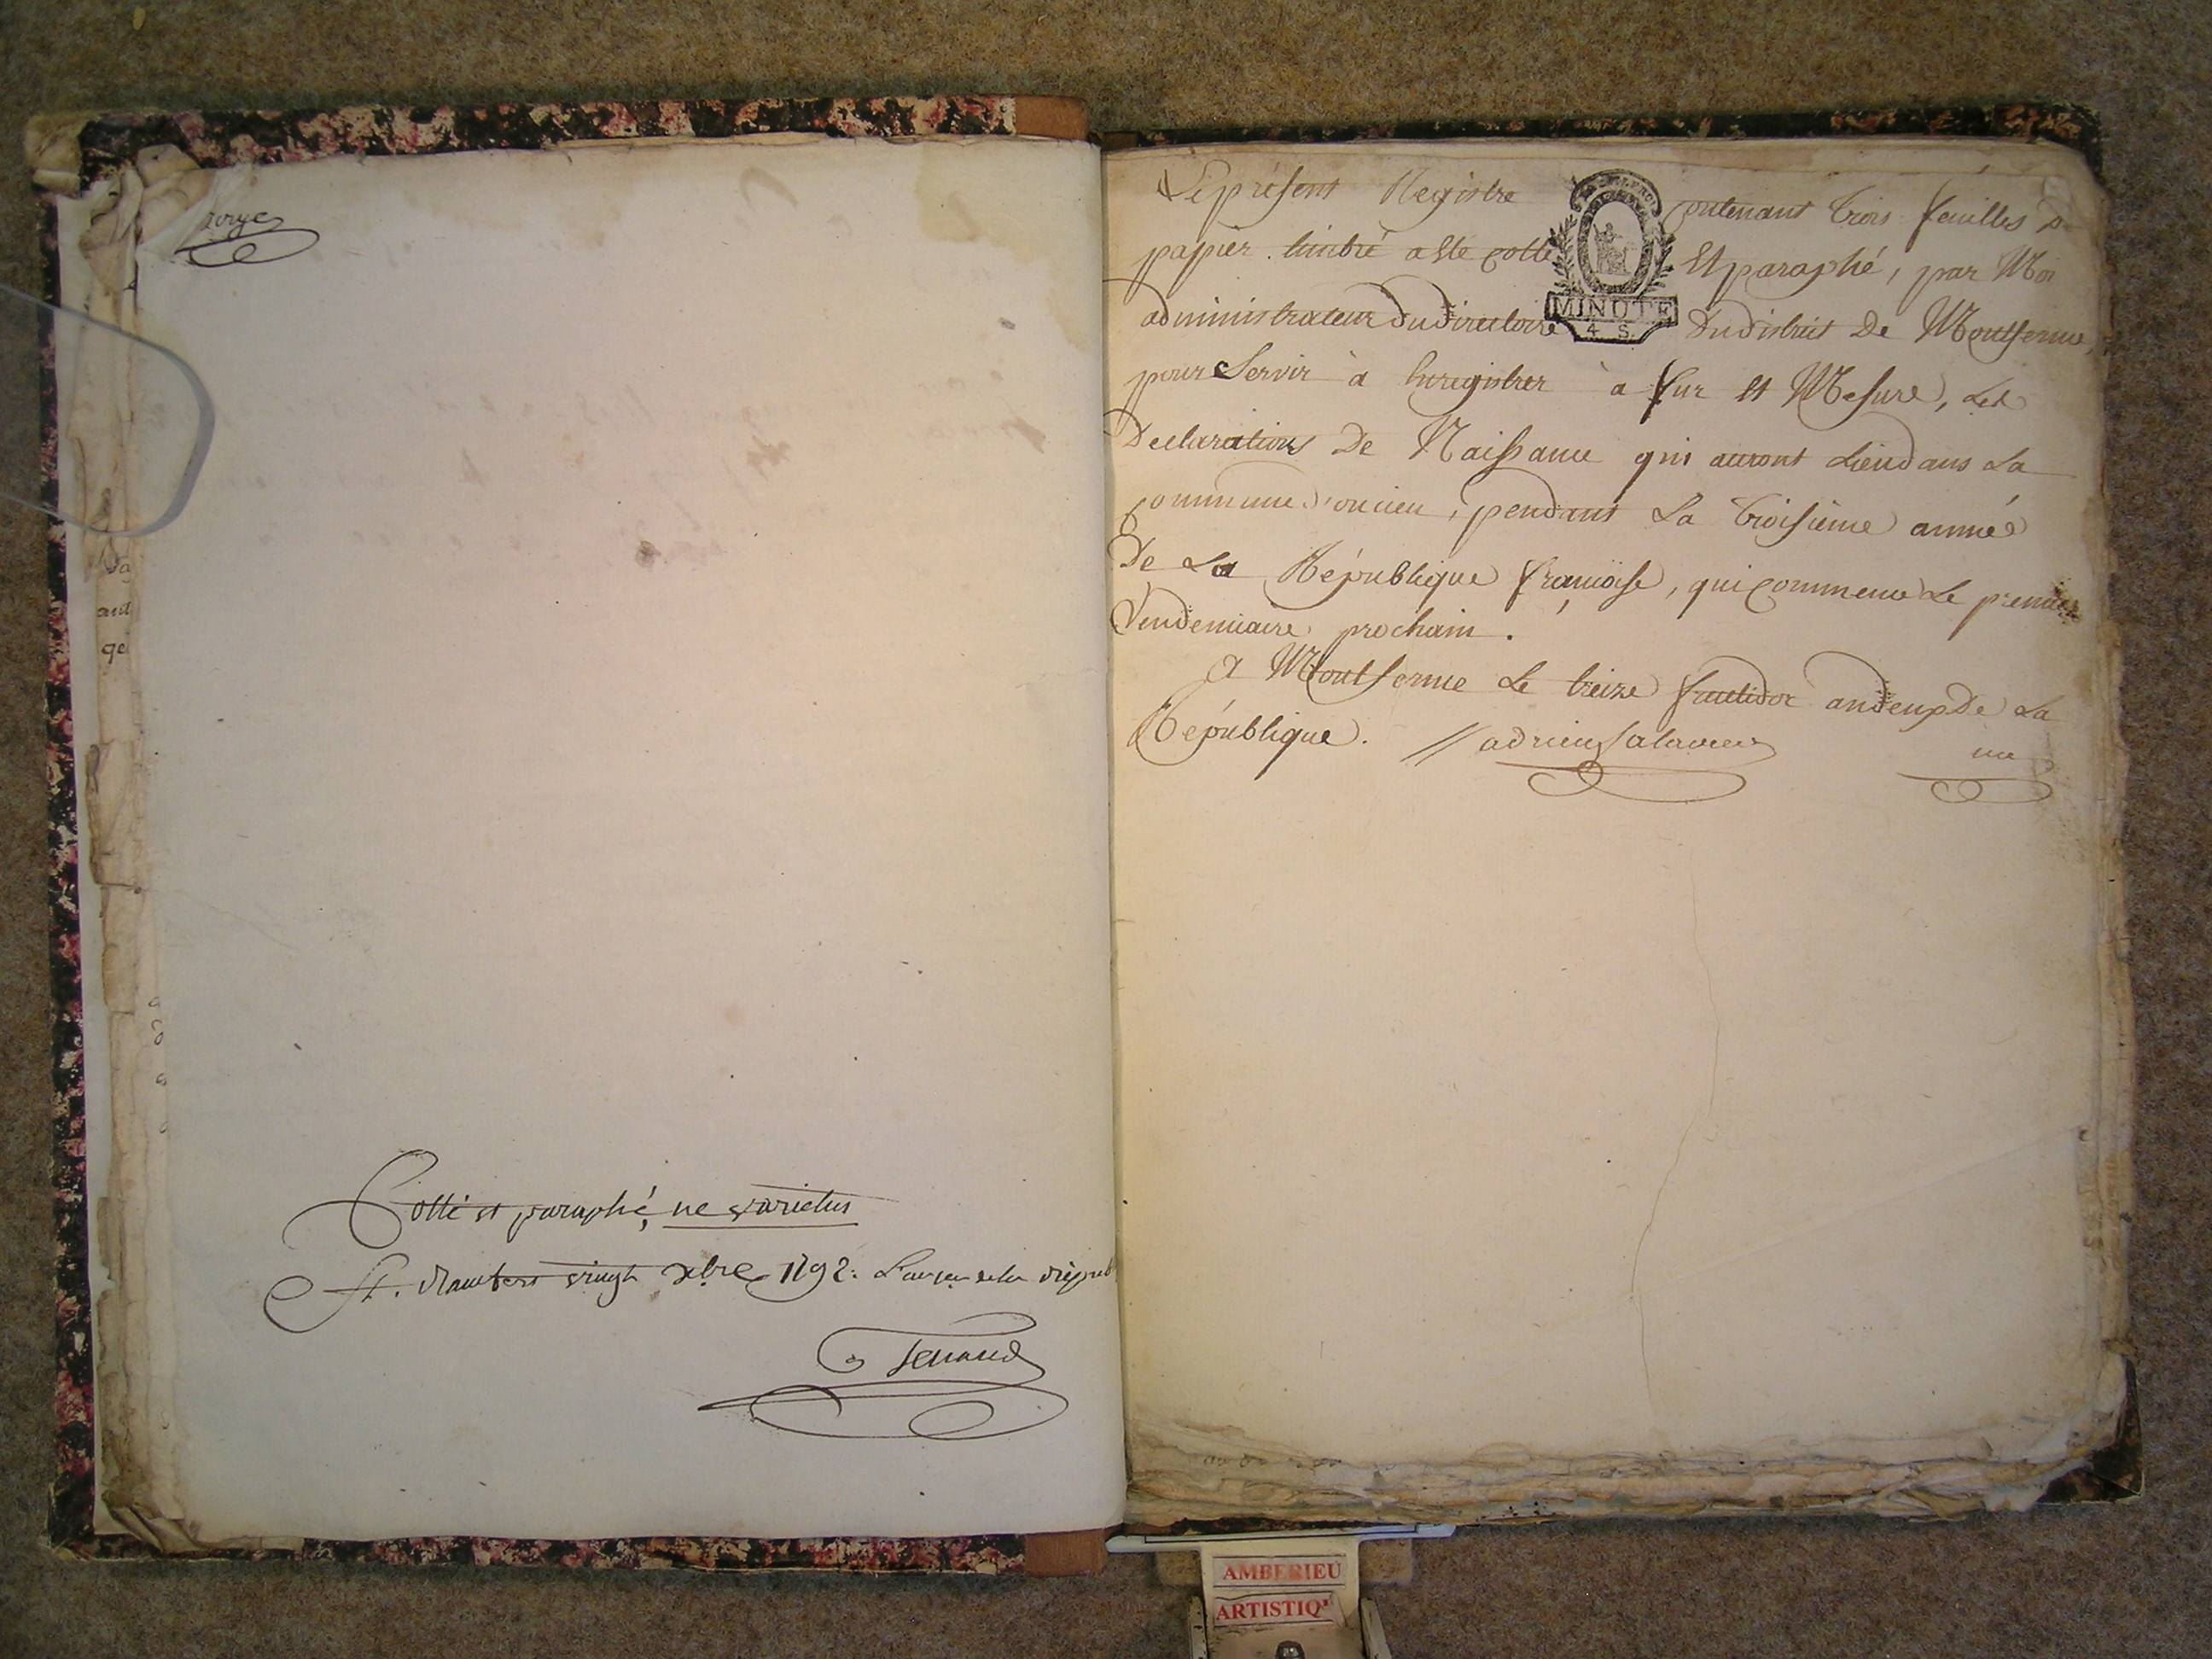 Cotté et paraphé, ne varietur
St. Rambert vingt xbre 1792. L'an 1er de la Répub
Tenand
Le présent Registre contenant trois feuilles
papier timbré a Eté cotté Et paraphé, par Moi
administrateur du directoire du district De Montferme,
pour Servir à Enregistrer à fur Et Mesure, Les
Declarations De Naissance qui auront Lieu dans La
commune d'oncieu, pendant La troisieme année
De La République françoise, qui commence Le premier
Vendemiaire prochain.
A Montferme Le treize fructidor an deux De La
République. // adrien Salavieu
une
MINUTE
4 S.
AMBERIEU
ARTISTIQ